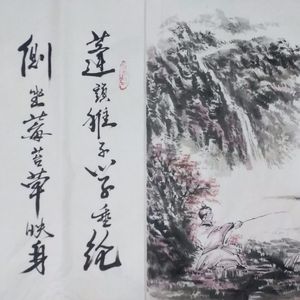 蓬頭稚子學垂綸
側坐莓苔草映身